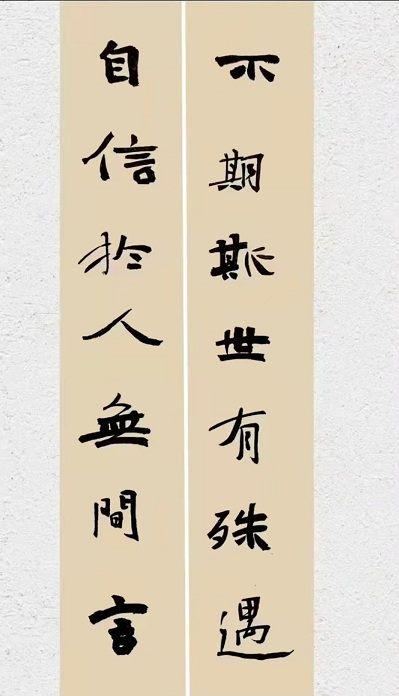 不期斯世有殊遇
自信於人無間言